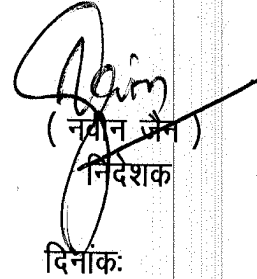 Jain
( नवीन जैन )
निदेशक
दिनांक: